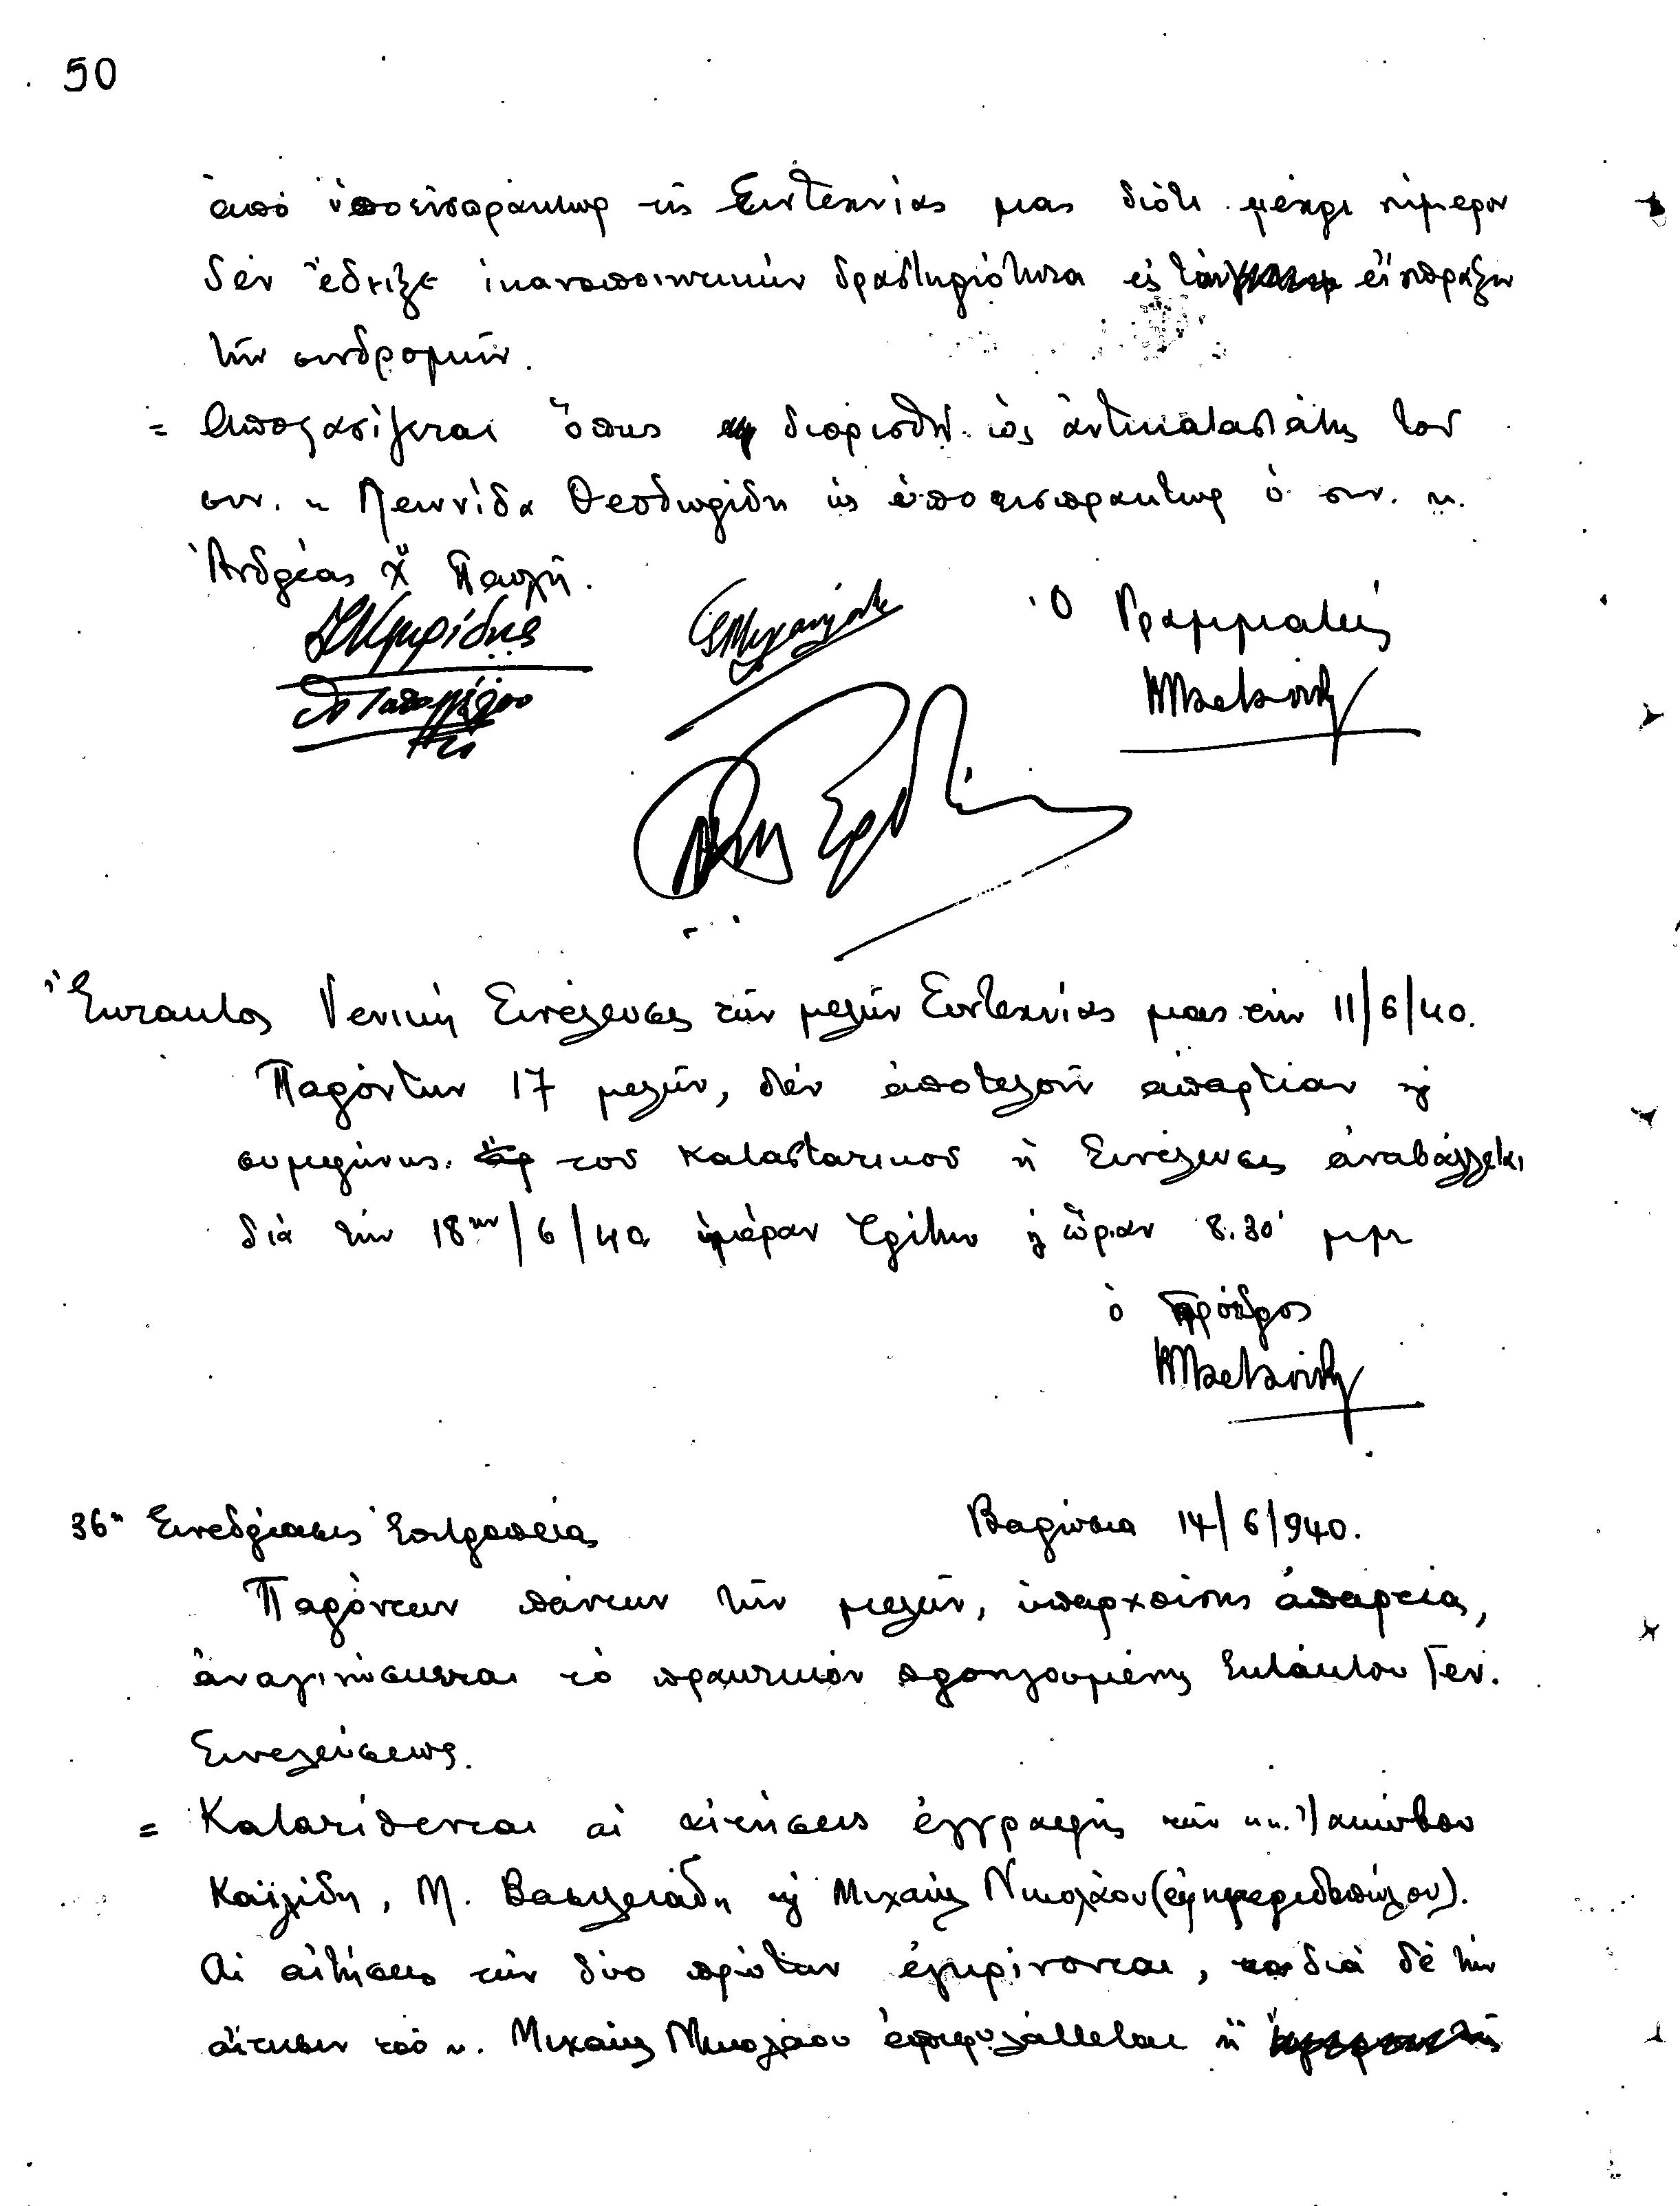 50
ἀπό ὑποεισπράκτωρ τῆς Συντεχνίας μας διότι μέχρι σήμερον
δέν ἔδειξε ἱκανοποιητικήν δραστηριότητα εἰς τήν εἴσπραξιν
τῶν συνδρομῶν.
= Ἀποφασίζεται ὅπως διορισθῇ ὡς ἀντικαταστάτης τοῦ
συν. κ Λεωνίδα Θεοδωρίδη ὡς ὑποεισπράκτωρ ὁ συν. κ.
Ἀνδρέας Χ" Παυλῆ.
Ὁ Γραμματεύς
Ἔκτακτος Γενική Συνέλευσις τῶν μελῶν Συντεχνίας μας τήν 11/6/40.
Παρόντων 17 μελῶν, δέν ἀποτελοῦν ἀπαρτίαν ϗ
συμφώνως τοῦ καταστατικοῦ ἡ Συνέλευσις ἀναβάλλεται
διά τήν 18ην/6/40 ἡμέραν Τρίτην ϗ ὥραν 8.30' μμ
ὁ Πρόεδρος
36η Συνεδρίασις Ἐπιτροπείας Βαρώσια 14/6/940.
Παρόντων πάντων τῶν μελῶν, ὑπαρχούσης ἀπαρτίας,
ἀναγινώσκεται τό πρακτικόν προηγουμένης Ἐκτάκτου Γεν.
Συνελεύσεως.
= Κατατίθενται αἱ αἰτήσεις ἐγγραφῆς τῶν κκ. Ἰακώβου
Καϊλίδη, Μ. Βασιλειάδη ϗ Μιχαήλ Νικολάου (ἐφημεριδοπώλου).
Αἱ αἰτήσεις τῶν δύο πρώτων ἐγκρίνονται, διά δέ τήν
αἴτησιν τοῦ κ. Μιχαήλ Νικολάου ἐπιφυλάττεται ἡ